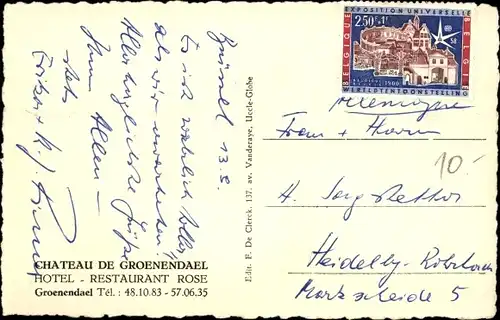 Brüssel 13.8.
Es ist wirklich toller
als wir erwarteten!
Allerherzlichste Grüße
Ihnen Allen —
stets
CHATEAU DE GROENENDAEL
HOTEL - RESTAURANT ROSE
Groenendael Tél. : 48.10.83 - 57.06.35
Edit. F. De Clerck. 137. av. Vanderaye. Uccle-Globe
EXPOSITION UNIVERSELLE
BELGIQUE
BELGIE
WERELDTENTOONSTELLING
2,50F+1F
58
Allemagne
Frau + Herrn
10.-
H. Jorg
Heidelbg-Rohrbach
Markscheide 5